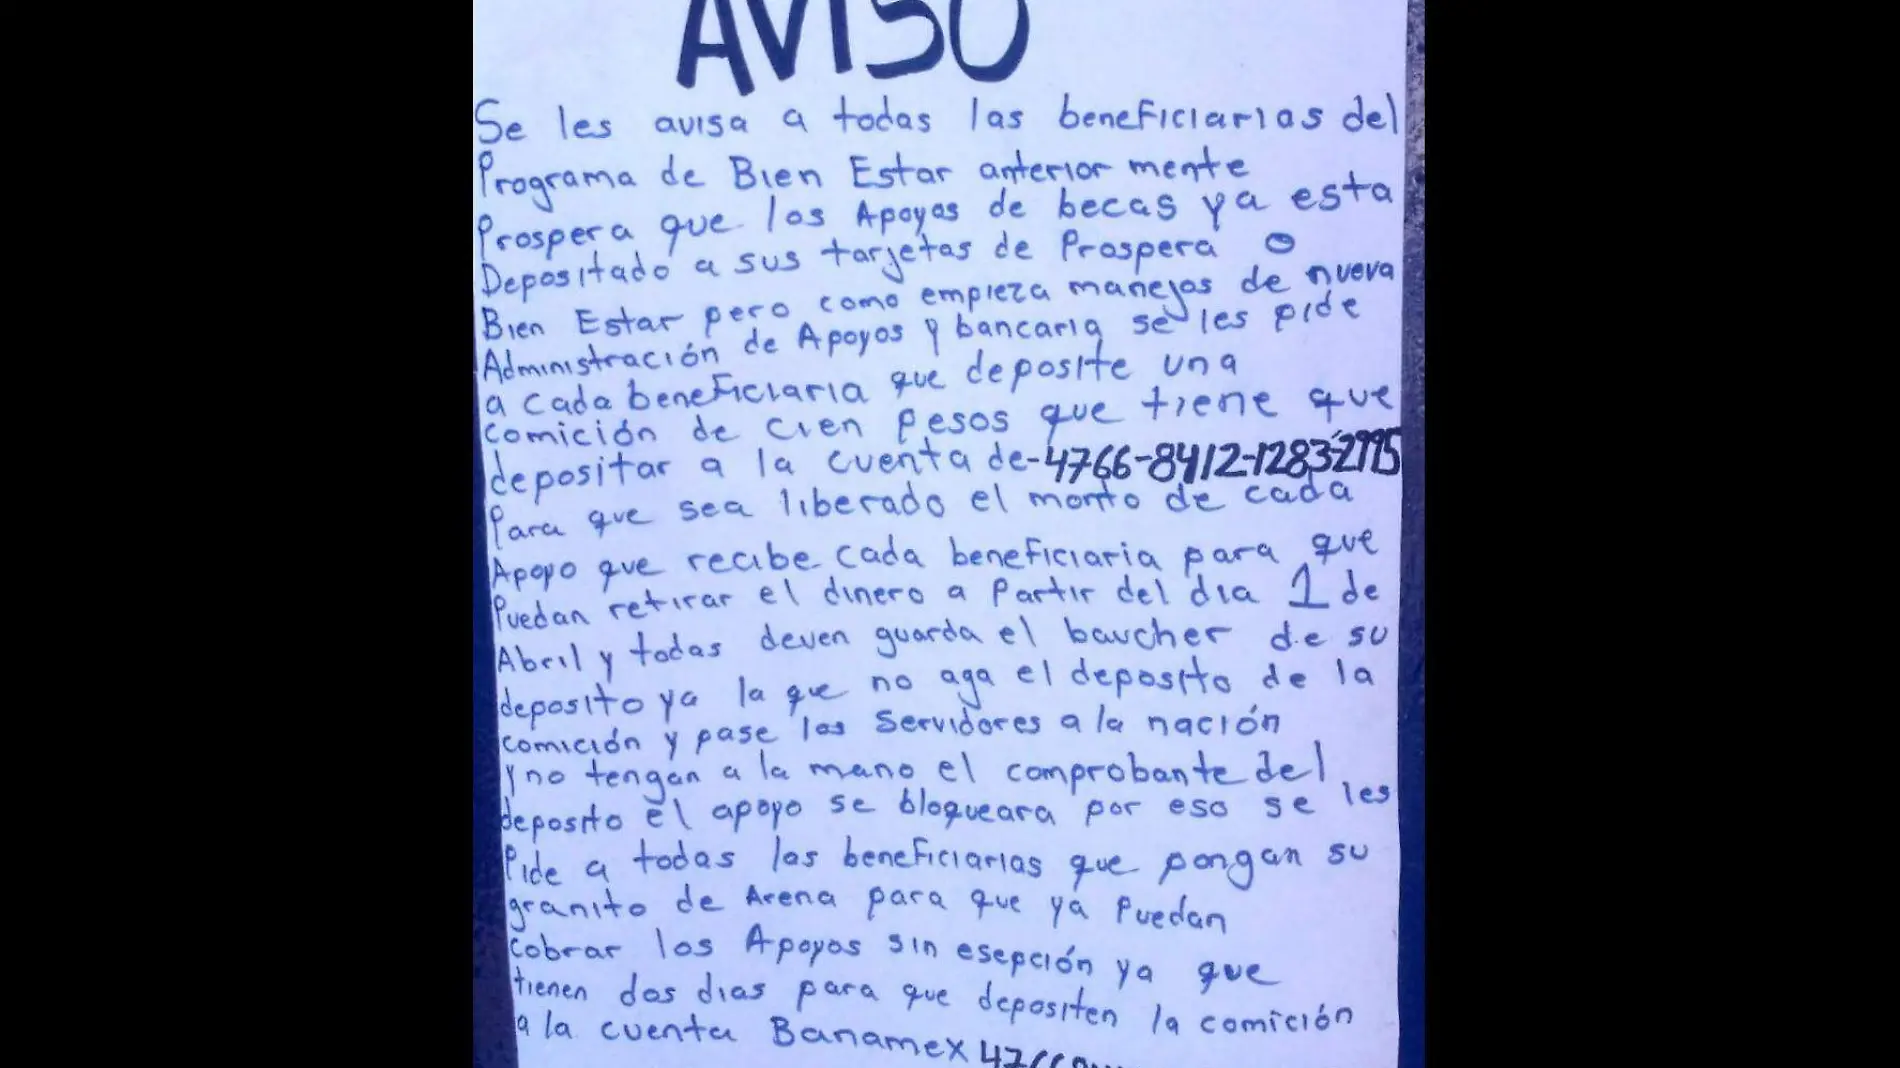 AVISO
Se les avisa a todas las beneficiarias del
Programa de Bien Estar anterior mente
Prospera que los Apoyos de becas ya esta
Depositado a sus tarjetas de Prospera o
Bien Estar pero como empieza manejos de nueva
Administración de Apoyos y bancaria se les pide
a cada beneficiaria que deposite una
comición de cien pesos que tiene que
depositar a la cuenta de-4766-8412-1283-2995
Para que sea liberado el monto de cada
Apoyo que recibe cada beneficiaria para que
Puedan retirar el dinero a Partir del dia 1 de
Abril y todas deven guarda el baucher de su
deposito ya la que no aga el deposito de la
comición y pase los Servidores a la nación
y no tengan a la mano el comprobante del
deposito el apoyo se bloqueara por eso se les
Pide a todas las beneficiarias que pongan su
granito de Arena para que ya Puedan
cobrar los Apoyos sin esepción ya que
tienen dos dias para que depositen la comición
a la cuenta Banamex